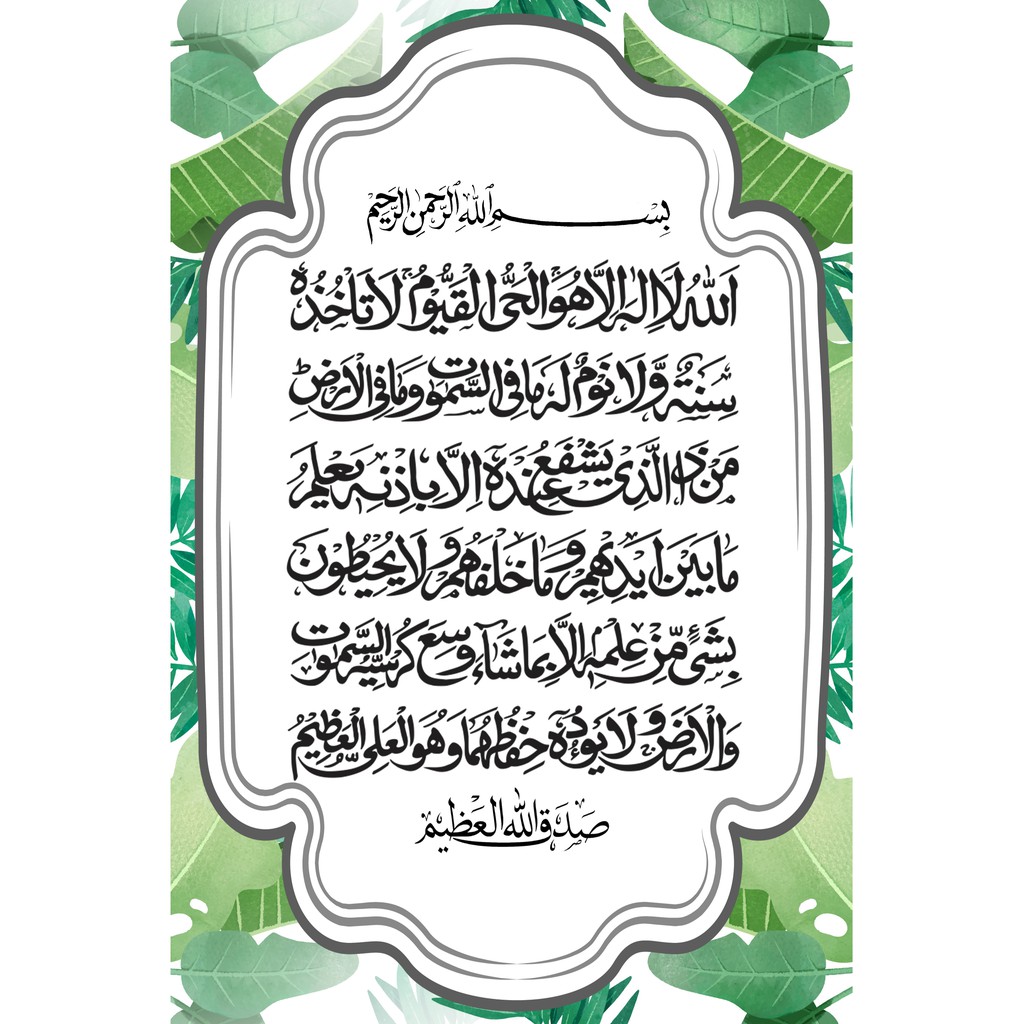 بِسْمِ ٱللَّٰهِ ٱلرَّحْمَٰنِ ٱلرَّحِيمِ
اَللّٰهُ لَاۤ اِلٰهَ اِلَّا هُوَ الْحَیُّ الْقَیُّوْمُ لَا تَاْخُذُهٗ
سِنَةٌ وَّلَا نَوْمٌ لَهٗ مَا فِی السَّمٰوٰتِ وَمَا فِی الْاَرْضِ
مَنْ ذَا الَّذِیْ یَشْفَعُ عِنْدَهٗۤ اِلَّا بِاِذْنِهٖ یَعْلَمُ
مَا بَیْنَ اَیْدِیْهِمْ وَمَا خَلْفَهُمْ وَلَا یُحِیْطُوْنَ
بِشَیْءٍ مِّنْ عِلْمِهٖۤ اِلَّا بِمَا شَآءَ وَسِعَ كُرْسِیُّهُ السَّمٰوٰتِ
وَالْاَرْضَ وَلَا یَـُٔوْدُهٗ حِفْظُهُمَا وَهُوَ الْعَلِیُّ الْعَظِیْمُ
صَدَقَ اللّٰهُ الْعَظِیْم